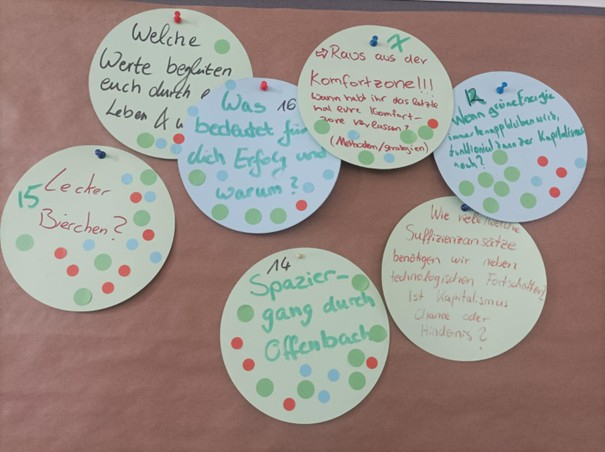 Welche
Werte begleiten
euch durch
Leben & w
16
Was
bedeutet für
dich Erfolg und
warum?
7
⇨ Raus aus der
Komfortzone!!!
Wann habt ihr das letzte
mal eure Komfort-
zone verlassen?
(Methoden/strategien)
12
Wenn grüne Energie
immer knapp bleiben wird,
funktioniert dann der Kapitalismus
noch?
15
Lecker
Bierchen?
14
Spazier-
gang durch
Offenbach
Wie viele
Suffizienzansätze
benötigen wir neben
technologischen Fortschritten?
Ist Kapitalismus
Chance oder
Hindernis?